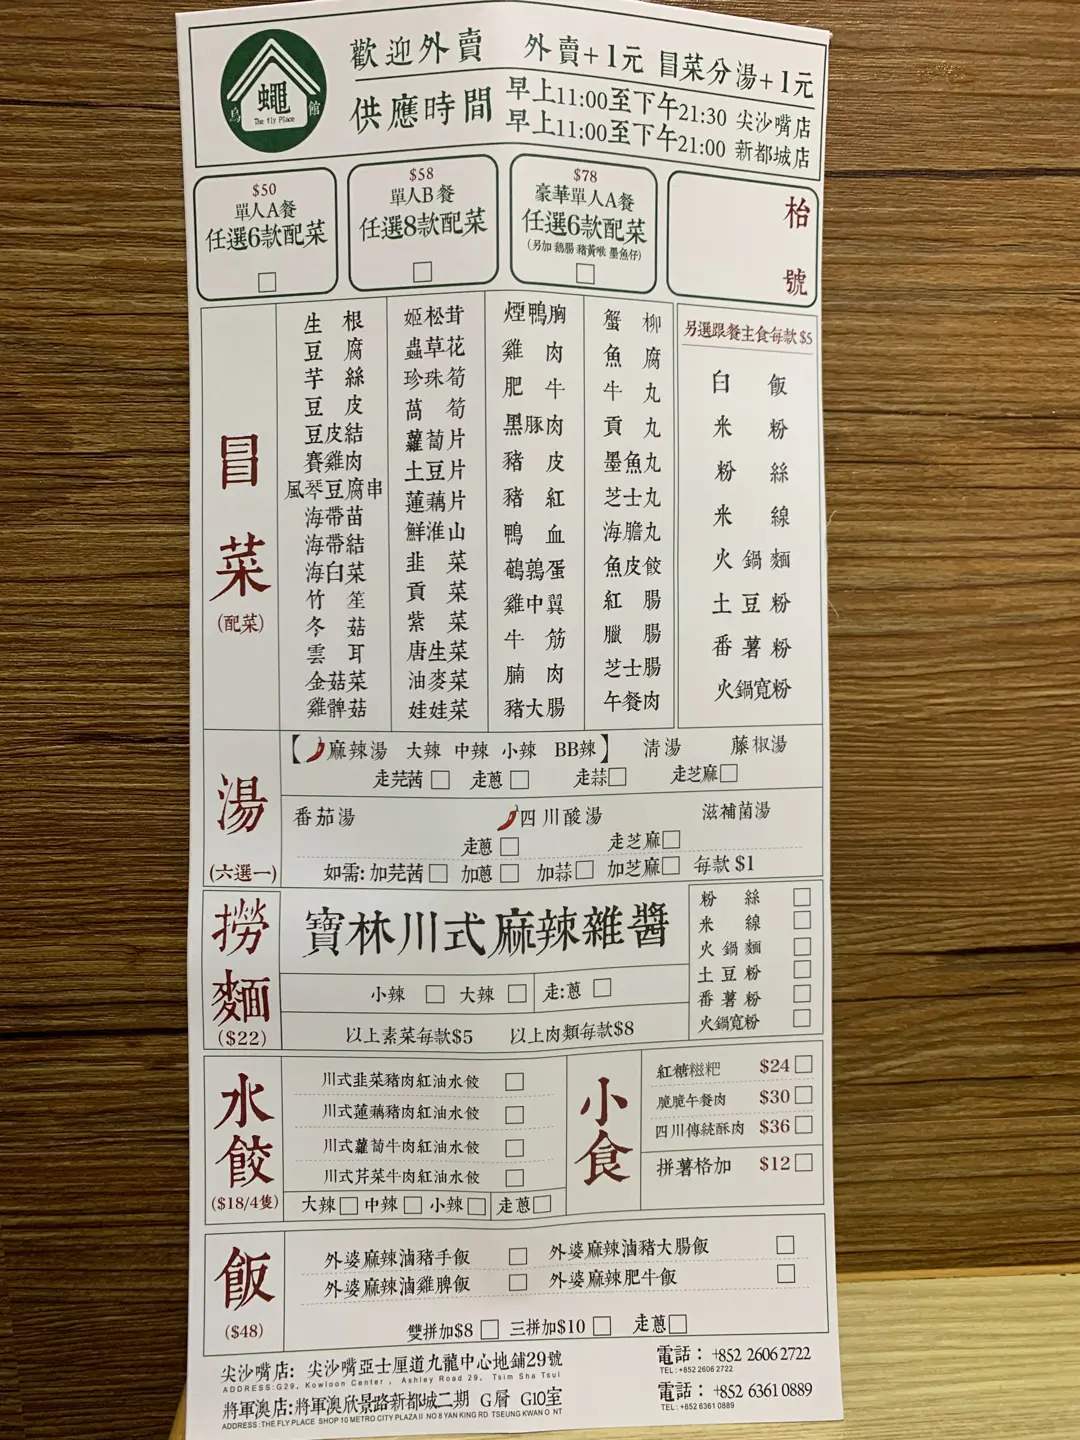 烏蠅館
The fly Place
歡迎外賣 外賣+1元 冒菜分湯+1元
供應時間
早上11:00至下午21:30 尖沙嘴店
早上11:00至下午21:00 新都城店
$50
單人A餐
任選6款配菜
$58
單人B餐
任選8款配菜
$78
豪華單人A餐
任選6款配菜
(另加 鵝腸 豬黃喉 墨魚仔)
枱號
冒菜
(配菜)
生根
豆腐
芋絲
豆皮
豆皮結
賽雞肉
風琴豆腐串
海帶苗
海帶結
海白菜
竹笙
冬菇
雲耳
金菇菜
雞髀菇
姬松茸
蟲草花
珍珠筍
萵筍
蘿蔔片
土豆片
蓮藕片
鮮淮山
韭菜
貢菜
紫菜
唐生菜
油麥菜
娃娃菜
煙鴨胸
雞肉
肥牛
黑豚肉
豬皮
豬紅
鴨血
鵪鶉蛋
雞中翼
牛筋
腩肉
豬大腸
蟹柳
魚腐
牛丸
貢丸
墨魚丸
芝士丸
海膽丸
魚皮餃
紅腸
臘腸
芝士腸
午餐肉
另選跟餐主食每款$5
白飯
米粉
粉絲
米線
火鍋麵
土豆粉
番薯粉
火鍋寬粉
湯
(六選一)
【麻辣湯 大辣 中辣 小辣 BB辣】 清湯 藤椒湯
走芫茜 走蔥 走蒜 走芝麻
番茄湯 四川酸湯 滋補菌湯
走蔥 走芝麻
如需:加芫茜 加蔥 加蒜 加芝麻 每款$1
撈麵
($22)
寶林川式麻辣雜醬
小辣 大辣 走:蔥
以上素菜每款$5 以上肉類每款$8
粉絲
米線
火鍋麵
土豆粉
番薯粉
火鍋寬粉
水餃
($18/4隻)
川式韭菜豬肉紅油水餃
川式蓮藕豬肉紅油水餃
川式蘿蔔牛肉紅油水餃
川式芹菜牛肉紅油水餃
大辣 中辣 小辣 走蔥
小食
紅糖糍粑 $24
脆脆午餐肉 $30
四川傳統酥肉 $36
拼薯格加 $12
飯
($48)
外婆麻辣滷豬手飯 外婆麻辣滷豬大腸飯
外婆麻辣滷雞脾飯 外婆麻辣肥牛飯
雙拼加$8 三拼加$10 走蔥
尖沙嘴店: 尖沙嘴亞士厘道九龍中心地鋪29號
ADDRESS:G29, Kowloon Center, Ashley Road 29, Tsim Sha Tsui
將軍澳店:將軍澳欣景路新都城二期 G層 G10室
ADDRESS :THE FLY PLACE SHOP 10 METRO CITY PLAZA II NO 8 YAN KING RD TSEUNG KWAN O NT
電話: +852 2606 2722
TEL:+852 2606 2722
電話: +852 6361 0889
TEL:+852 6361 0889